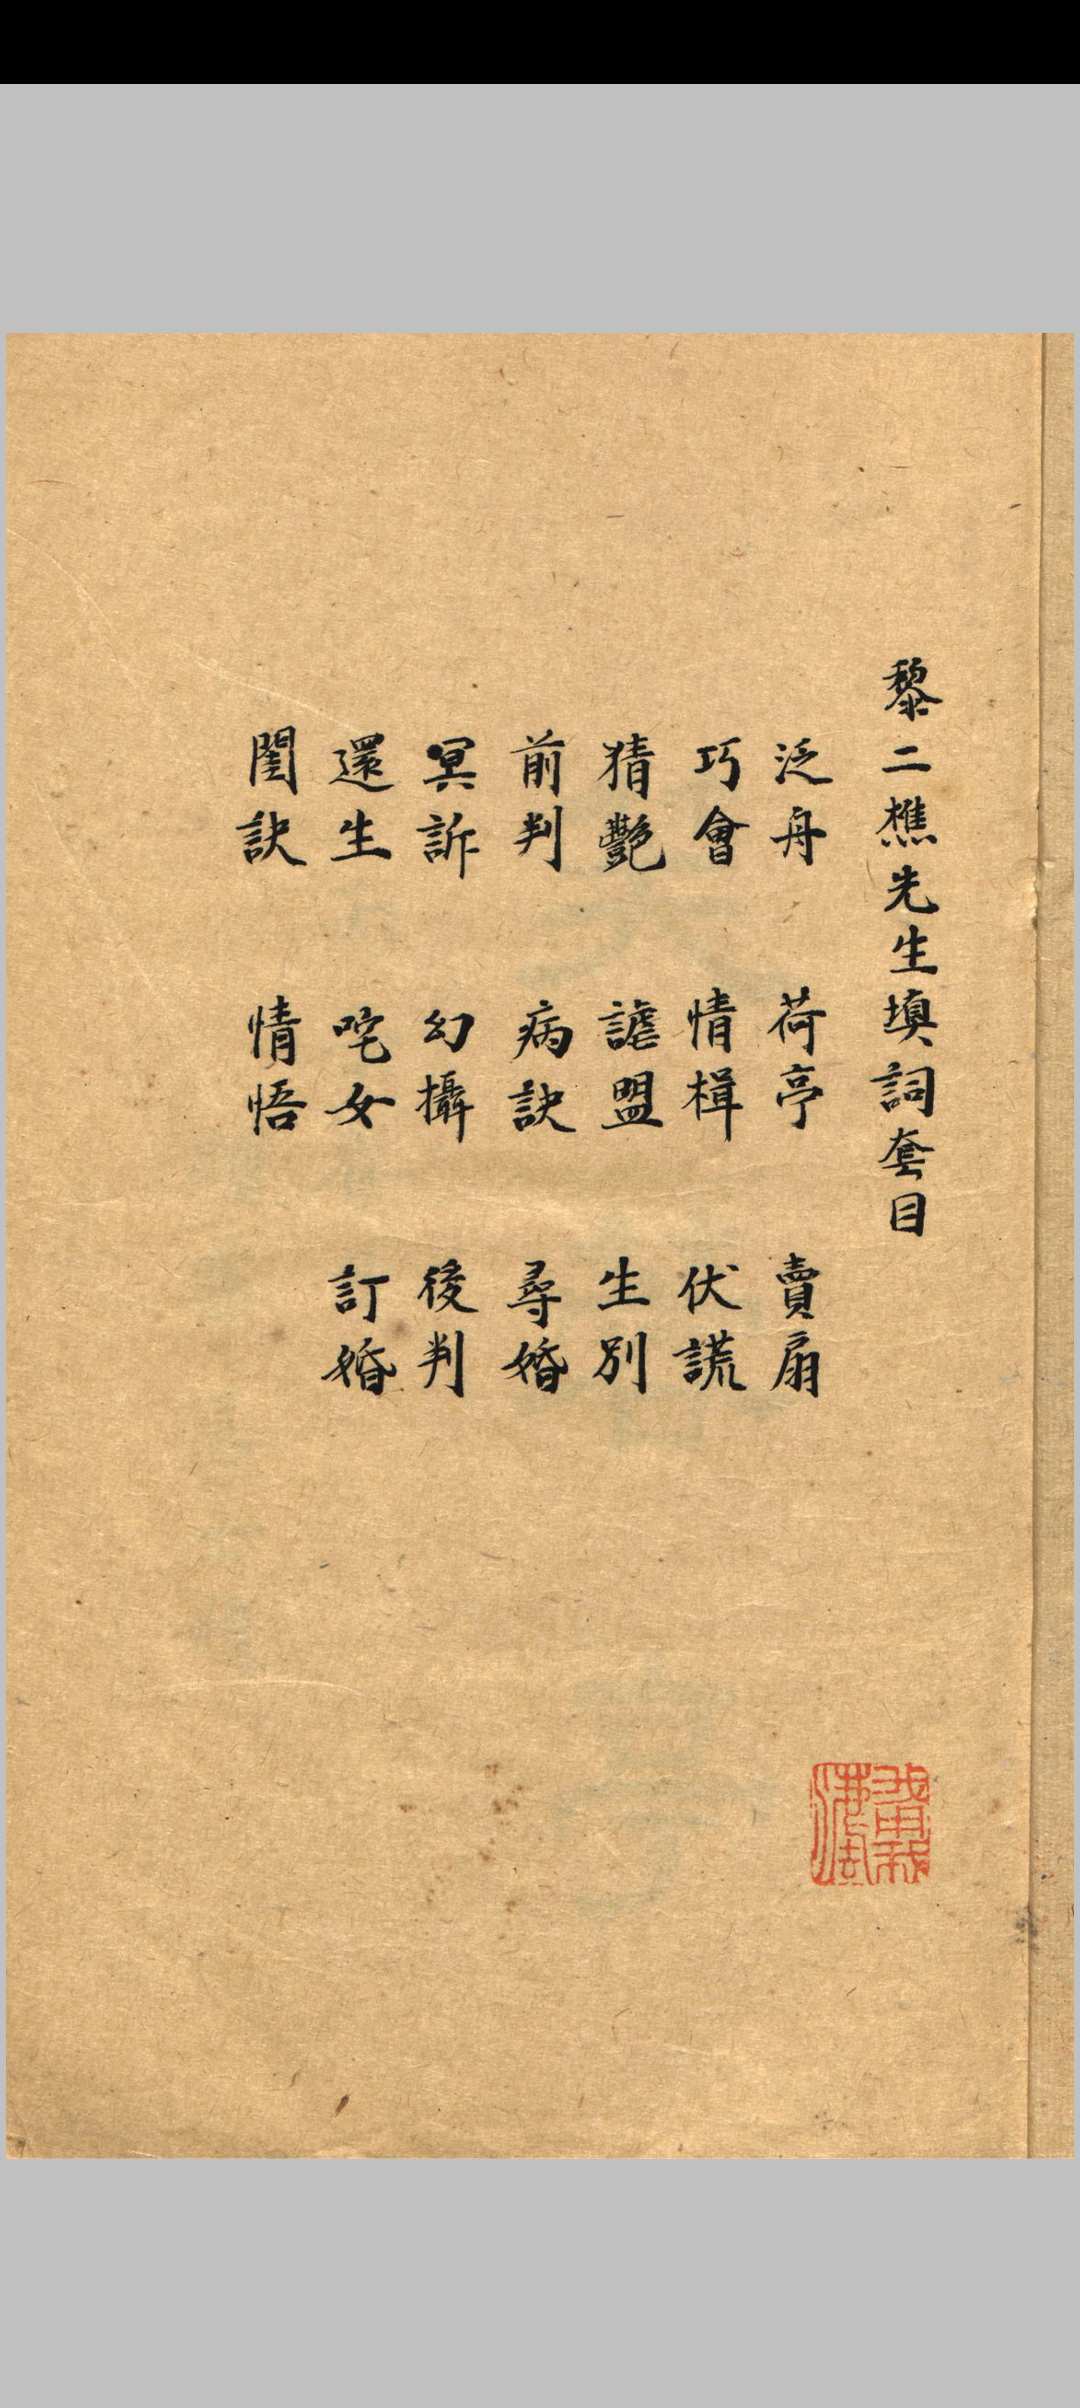 黎二樵先生填詞套目
泛舟　荷亭　賣扇
巧會　情楫　伏謊
猜艷　謔盟　生別
前判　病訣　尋婚
冥訴　幻攝　後判
還生　咤女　訂婚
閨訣　情悟